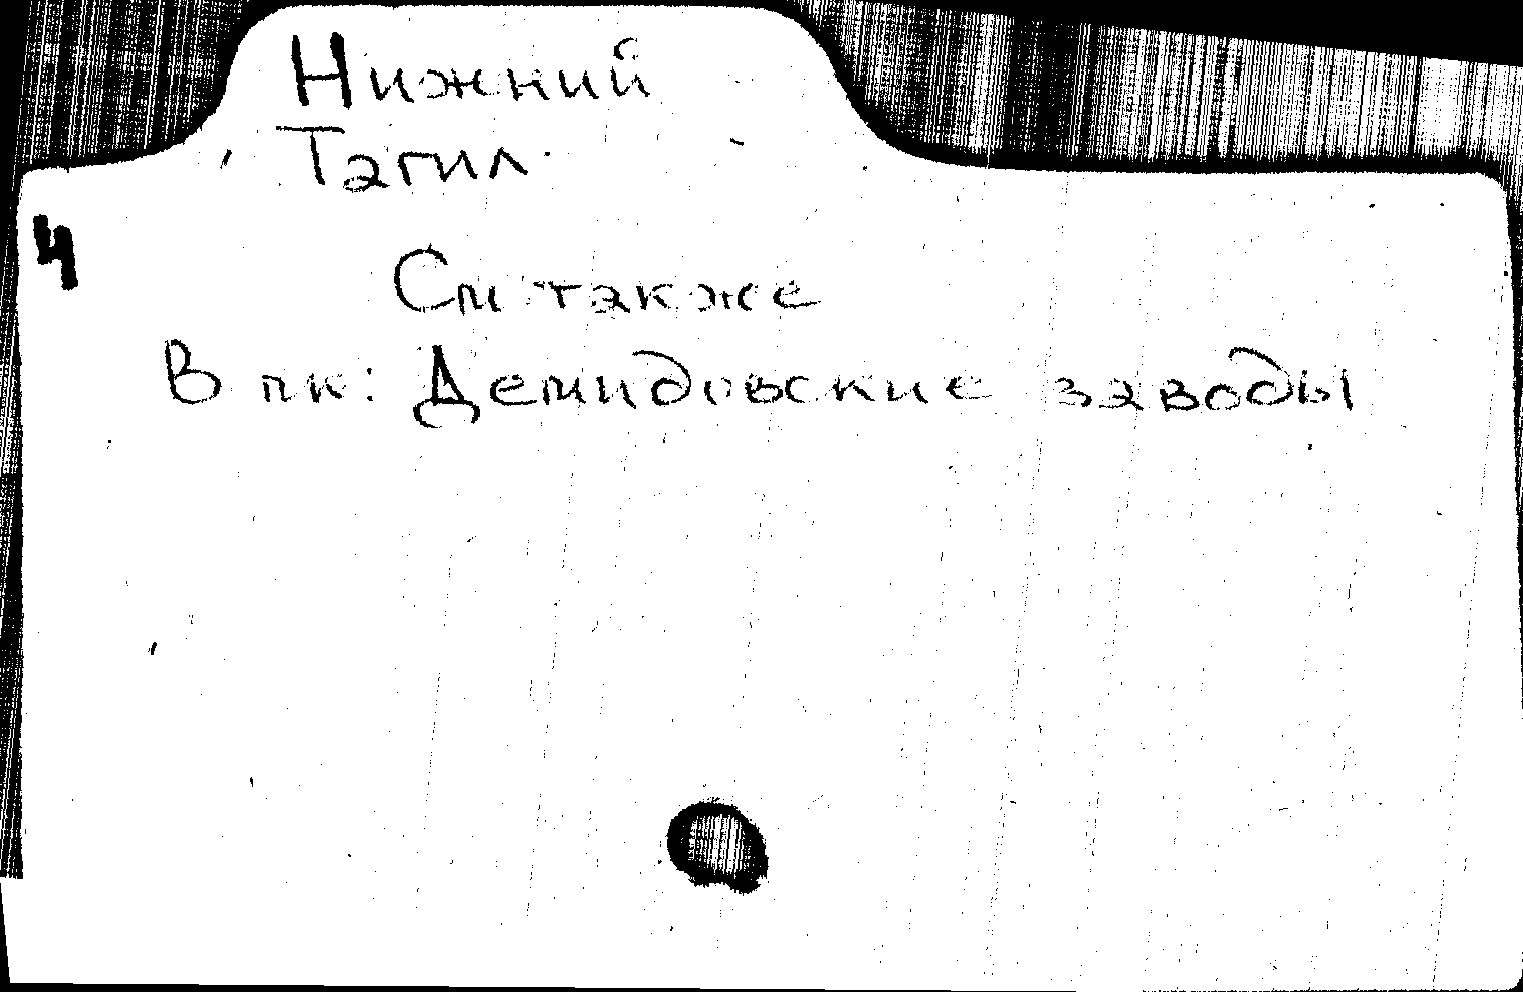 Нижний
Тагил
4
См также
В пк: Демидовские заводы